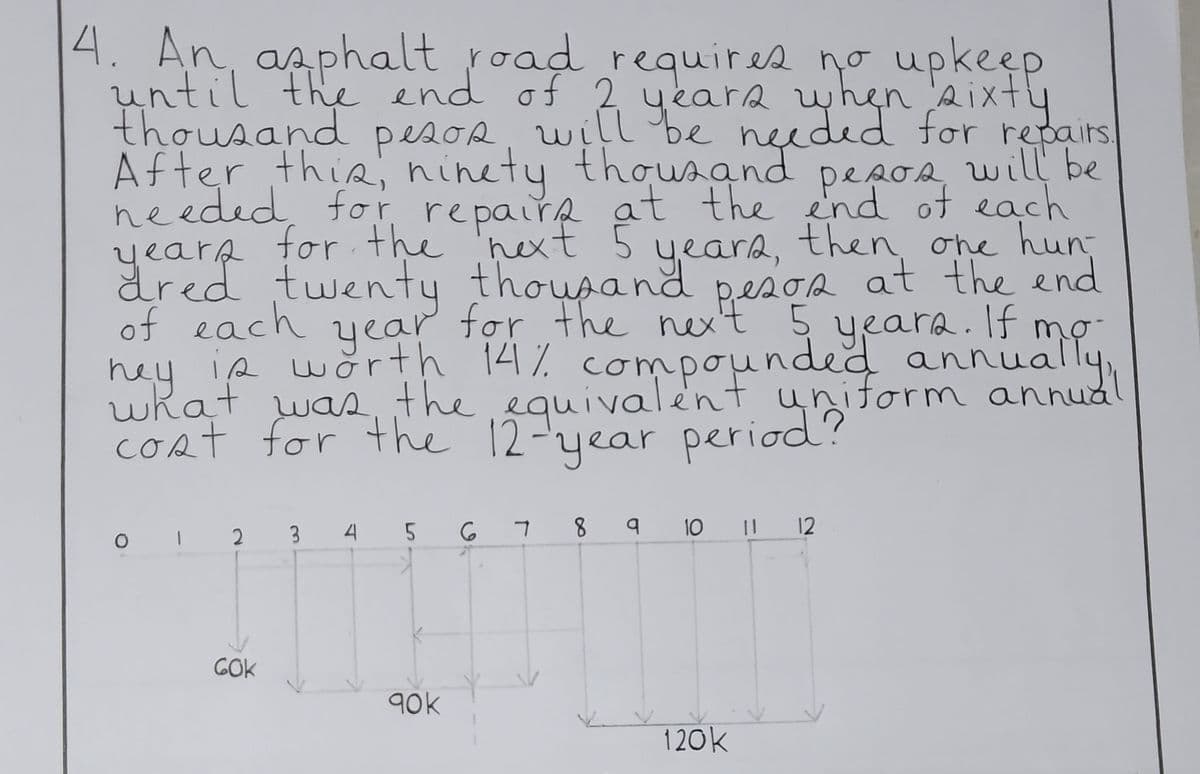 4. An asphalt road requires no upkeep
until the end of 2 years when sixty
thousand pesos will be needed for repairs.
After this, ninety thousand pesos will be
needed for repairs at the end of each
years for the next 5 years, then one hun-
dred twenty thousand pesos at the end
of each year for the next 5 years. If mo-
ney is worth 14% compounded annually,
what was the equivalent uniform annual
cost for the 12-year period?
0 1 2 3 4 5 6 7 8 9 10 11 12
60k
90k
120k